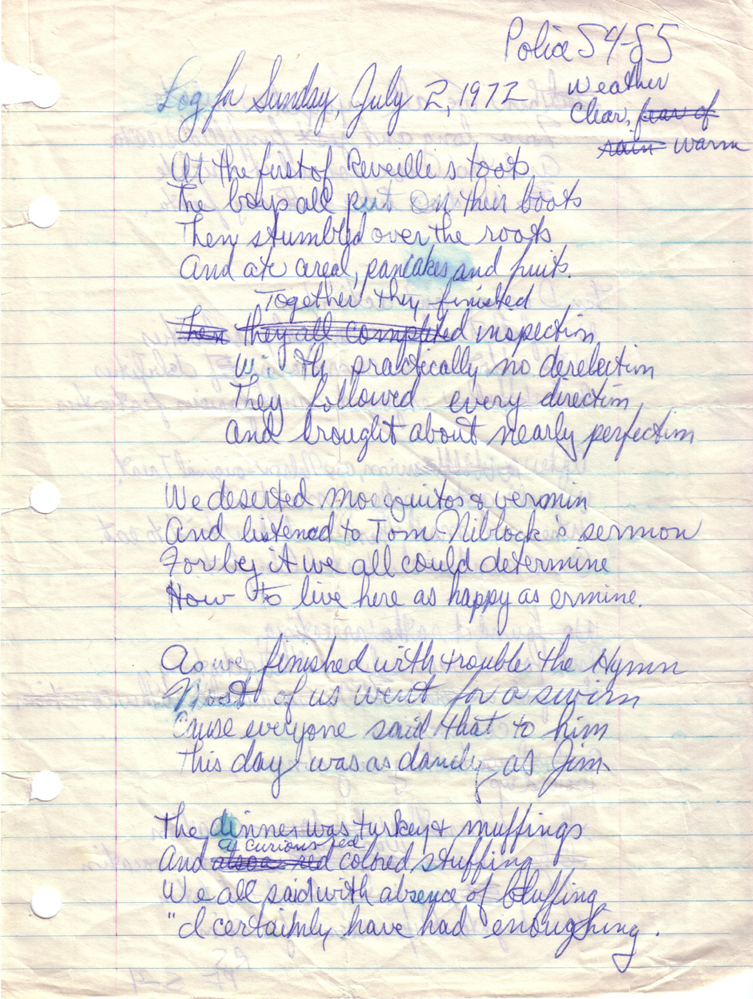 Police 54-55
Log for Sunday, July 2, 1972
Weather
Clear, fear of
rain warm
At the first of Reveille's toots,
The boys all put on their boots
They stumbled over the roots
And ate cereal, pancakes, and fruits.
Together they finished
Then they all completed inspection,
With practically no derelection
They followed every direction,
And brought about nearly perfection
We deserted mosquitos & vermin
And listened to Tom Niblock's sermon
For by it we all could determine
How to live here as happy as ermine.
As we finished with trouble the Hymn
Most of us went for a swim
'Cause everyone said that to him
This day was as dandy as Jim.
The dinner was turkey & muffings
a curious red
And also a red colored stuffing
We all said with absence of bluffing,
"I certainly have had enoughing.